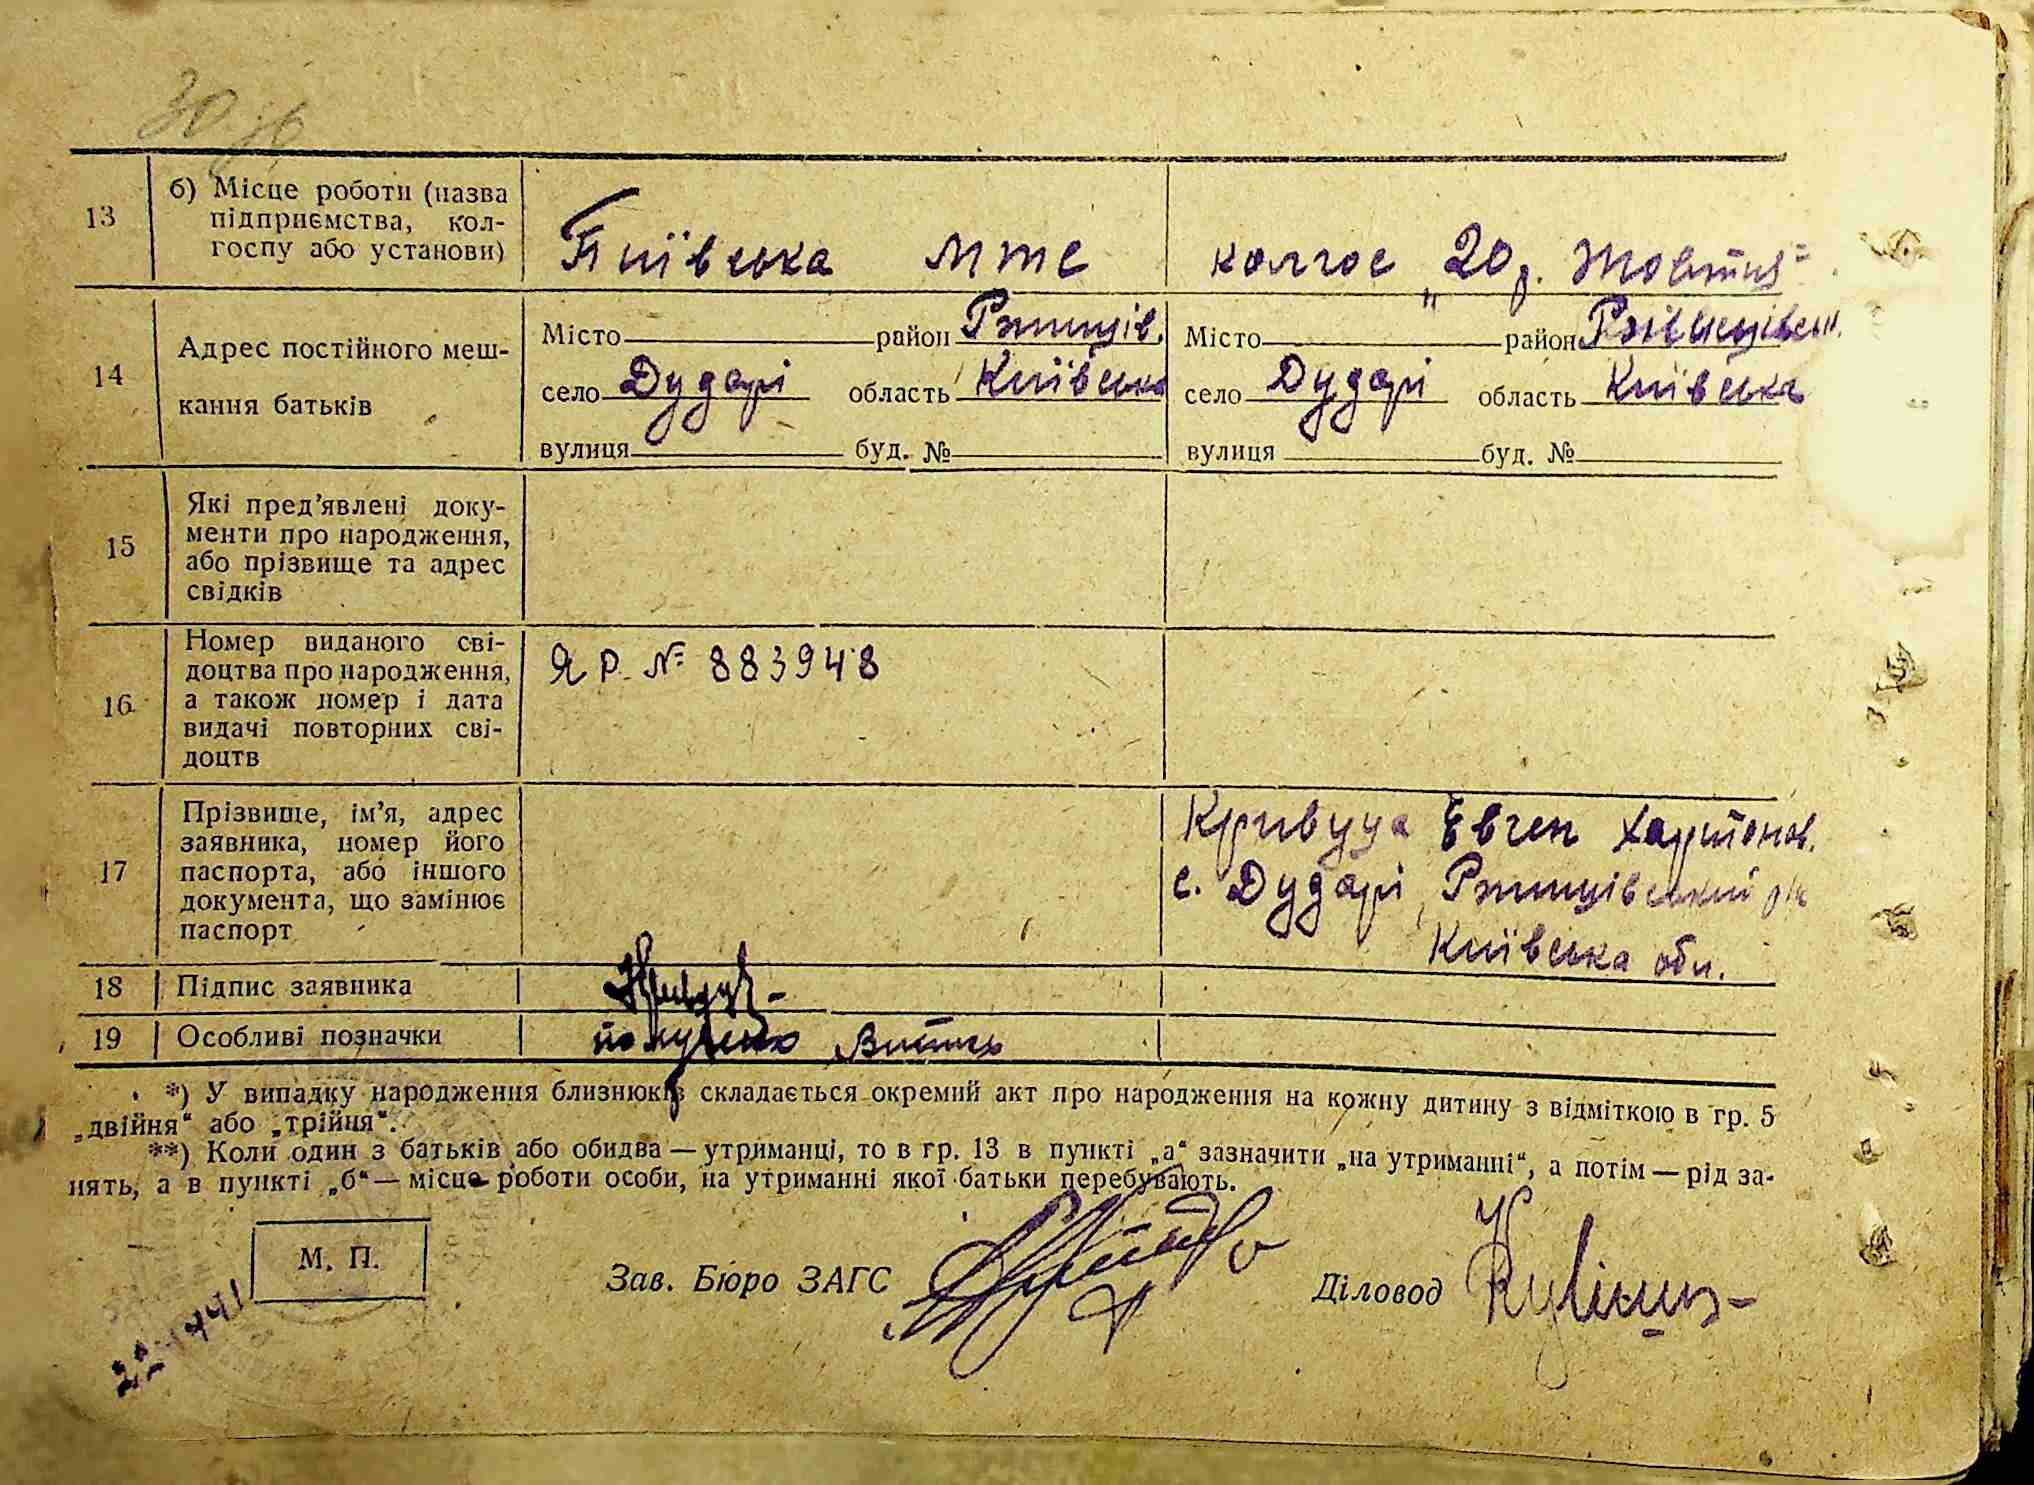 13
б) Місце роботи (назва
підприємства, кол-
госпу або установи)
Пиївська МТС
колгос „20 р. Жовтня"
14
Адрес постійного меш-
кання батьків
Місто район Ржищів.
село Дударі область Київська
вулиця буд. №
Місто район
село Дударі область Київська
вулиця буд. №
15
Які пред'явлені доку-
менти про народження,
або прізвище та адрес
свідків
16
Номер виданого сві-
доцтва про народження,
а також номер і дата
видачі повторних сві-
доцтв
ЯР № 883948
17
Прізвище, ім'я, адрес
заявника, номер його
паспорта, або іншого
документа, що замінює
паспорт
Кривуца Євген Харитонов.
с. Дударі, Ржищівський р/н
Київська обл.
18
Підпис заявника
19
Особливі позначки
*) У випадку народження близнюків складається окремий акт про народження на кожну дитину з відміткою в гр. 5
„двійня“ або „трійня“.
**) Коли один з батьків або обидва — утриманці, то в гр. 13 в пункті „а“ зазначити „на утриманні“, а потім — рід за-
нять, а в пункті „б“ — місце роботи особи, на утриманні якої батьки перебувають.
М. П.
Зав. Бюро ЗАГС
Діловод